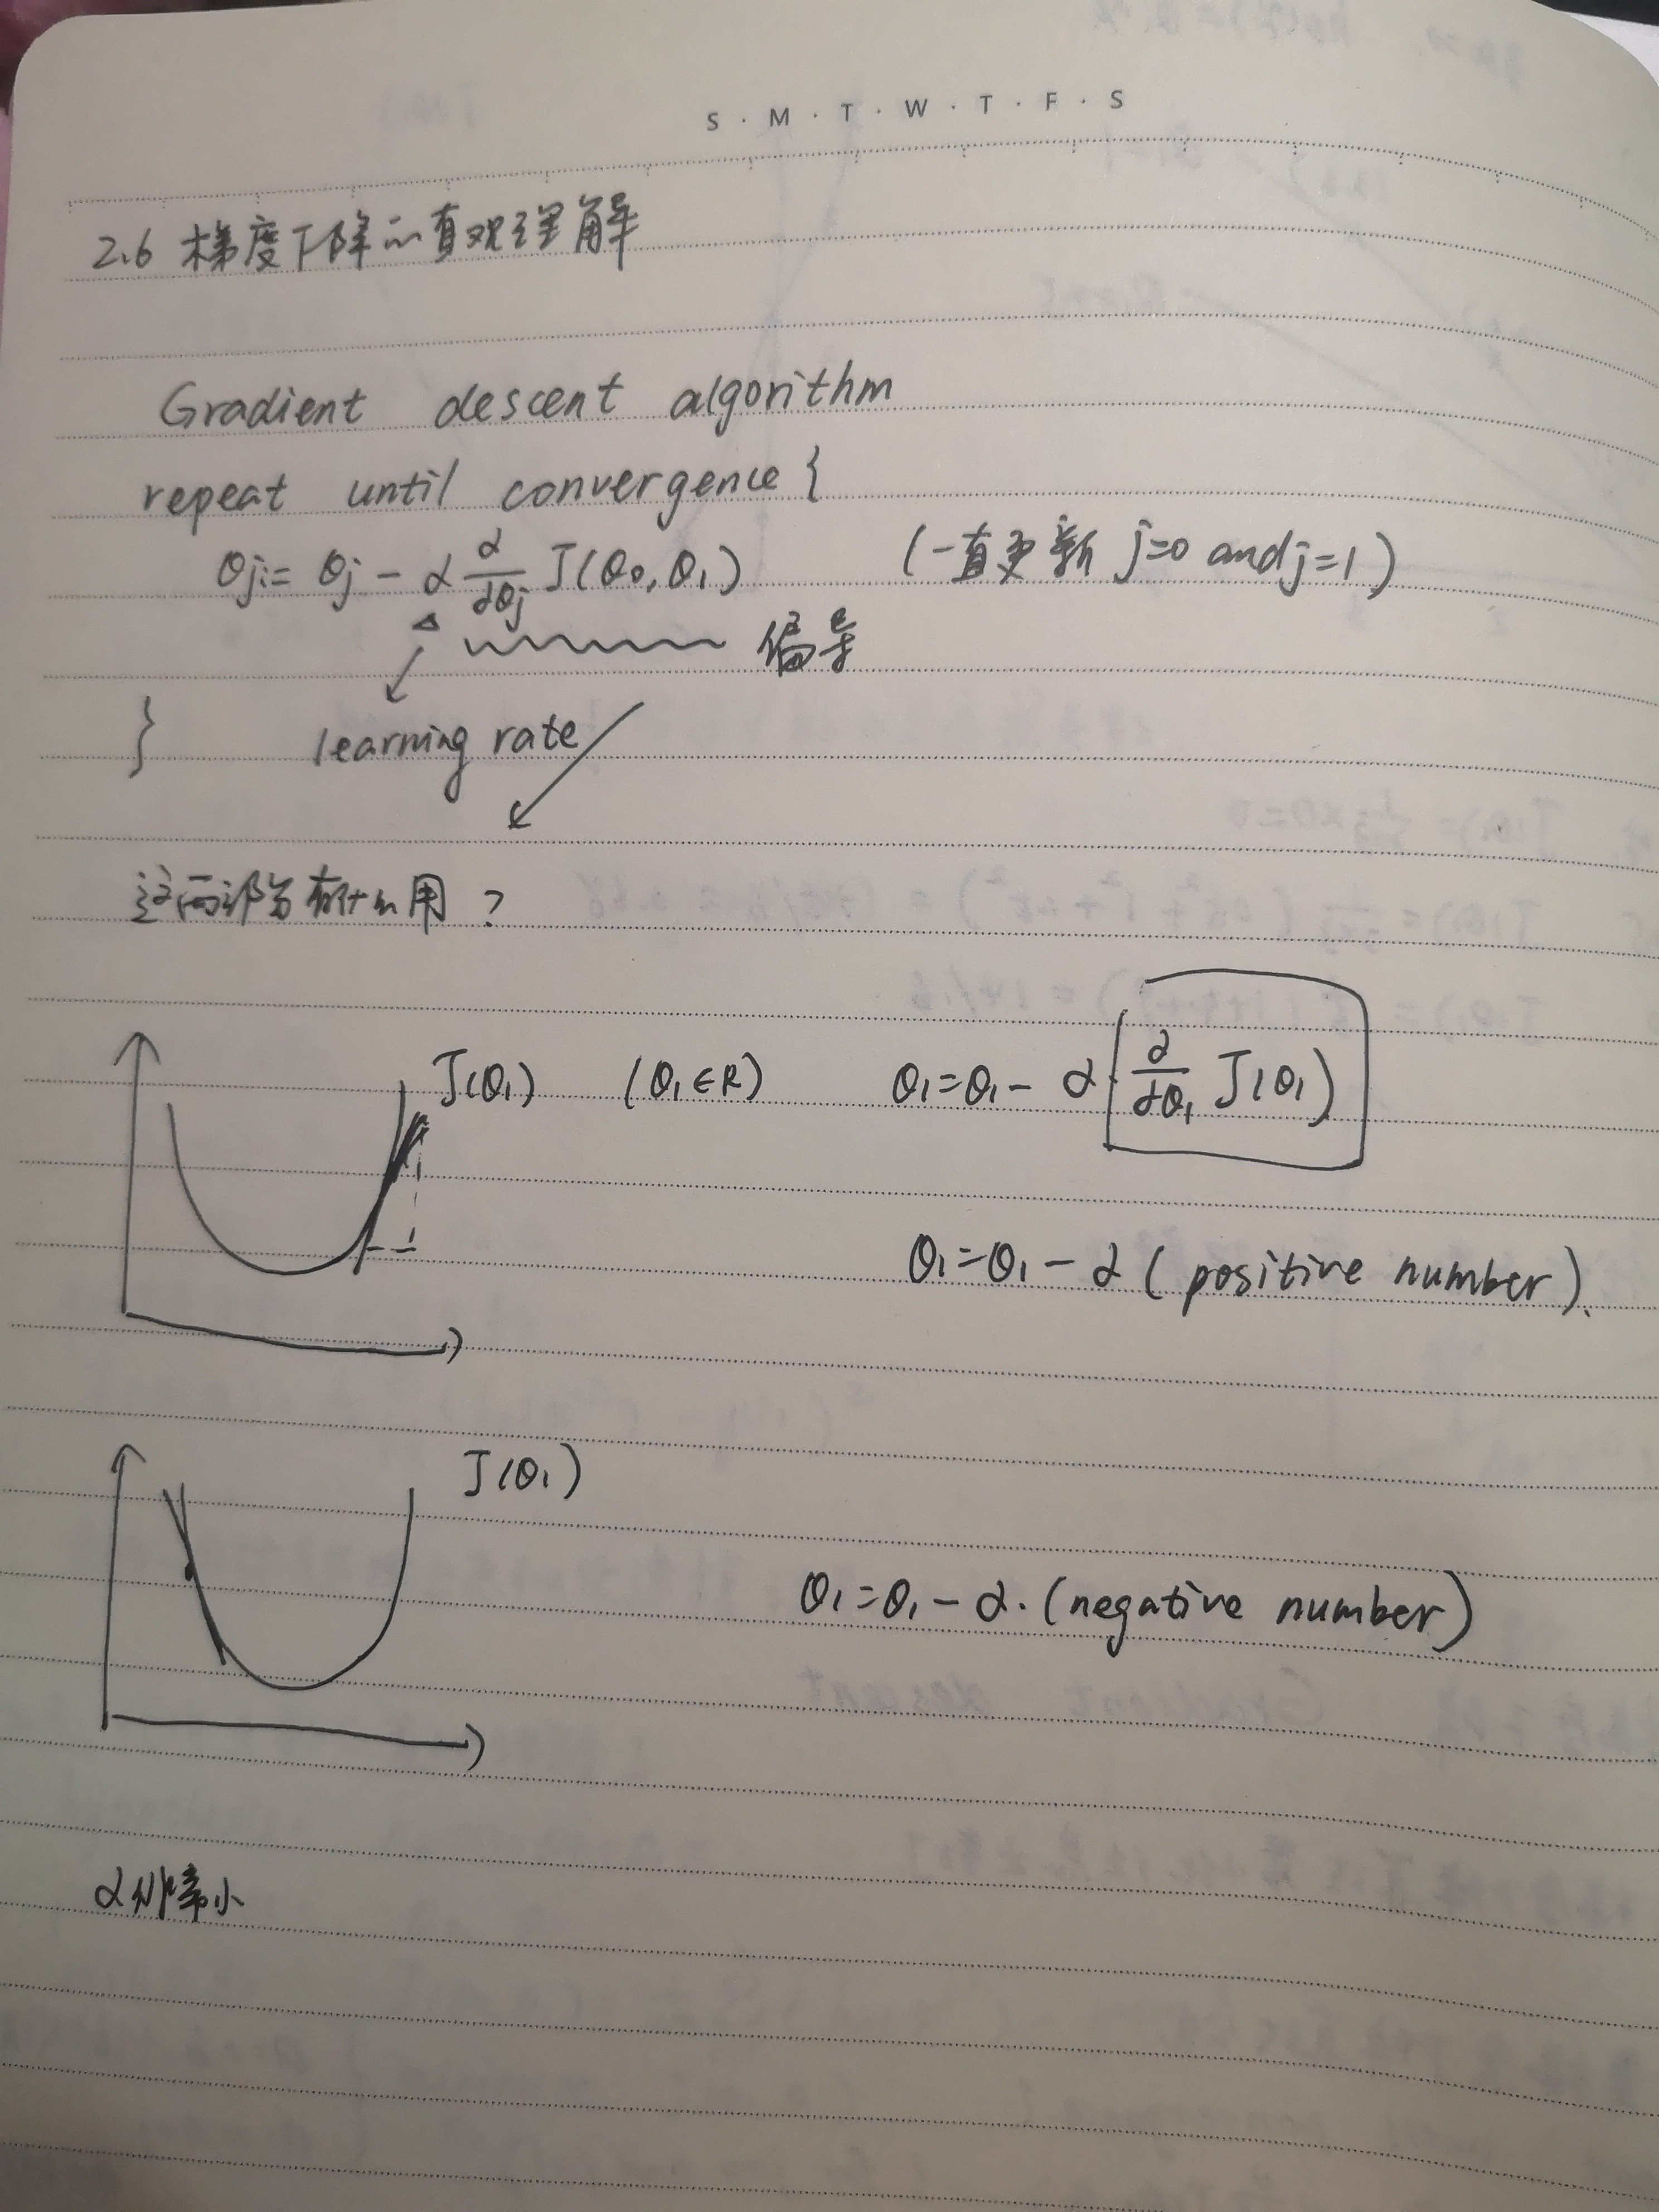 S · M · T · W · T · F · S
2.6 梯度下降的直观理解
Gradient descent algorithm
repeat until convergence {
θj := θj - α d/dθj J(θ0, θ1) (一直更新 j=0 and j=1)
偏导
} learning rate
这两部分有什么用?
J(θ1) (θ1∈R) θ1=θ1- α d/dθ1 J(θ1)
θ1=θ1-α (positive number).
J(θ1)
θ1=θ1-α·(negative number)